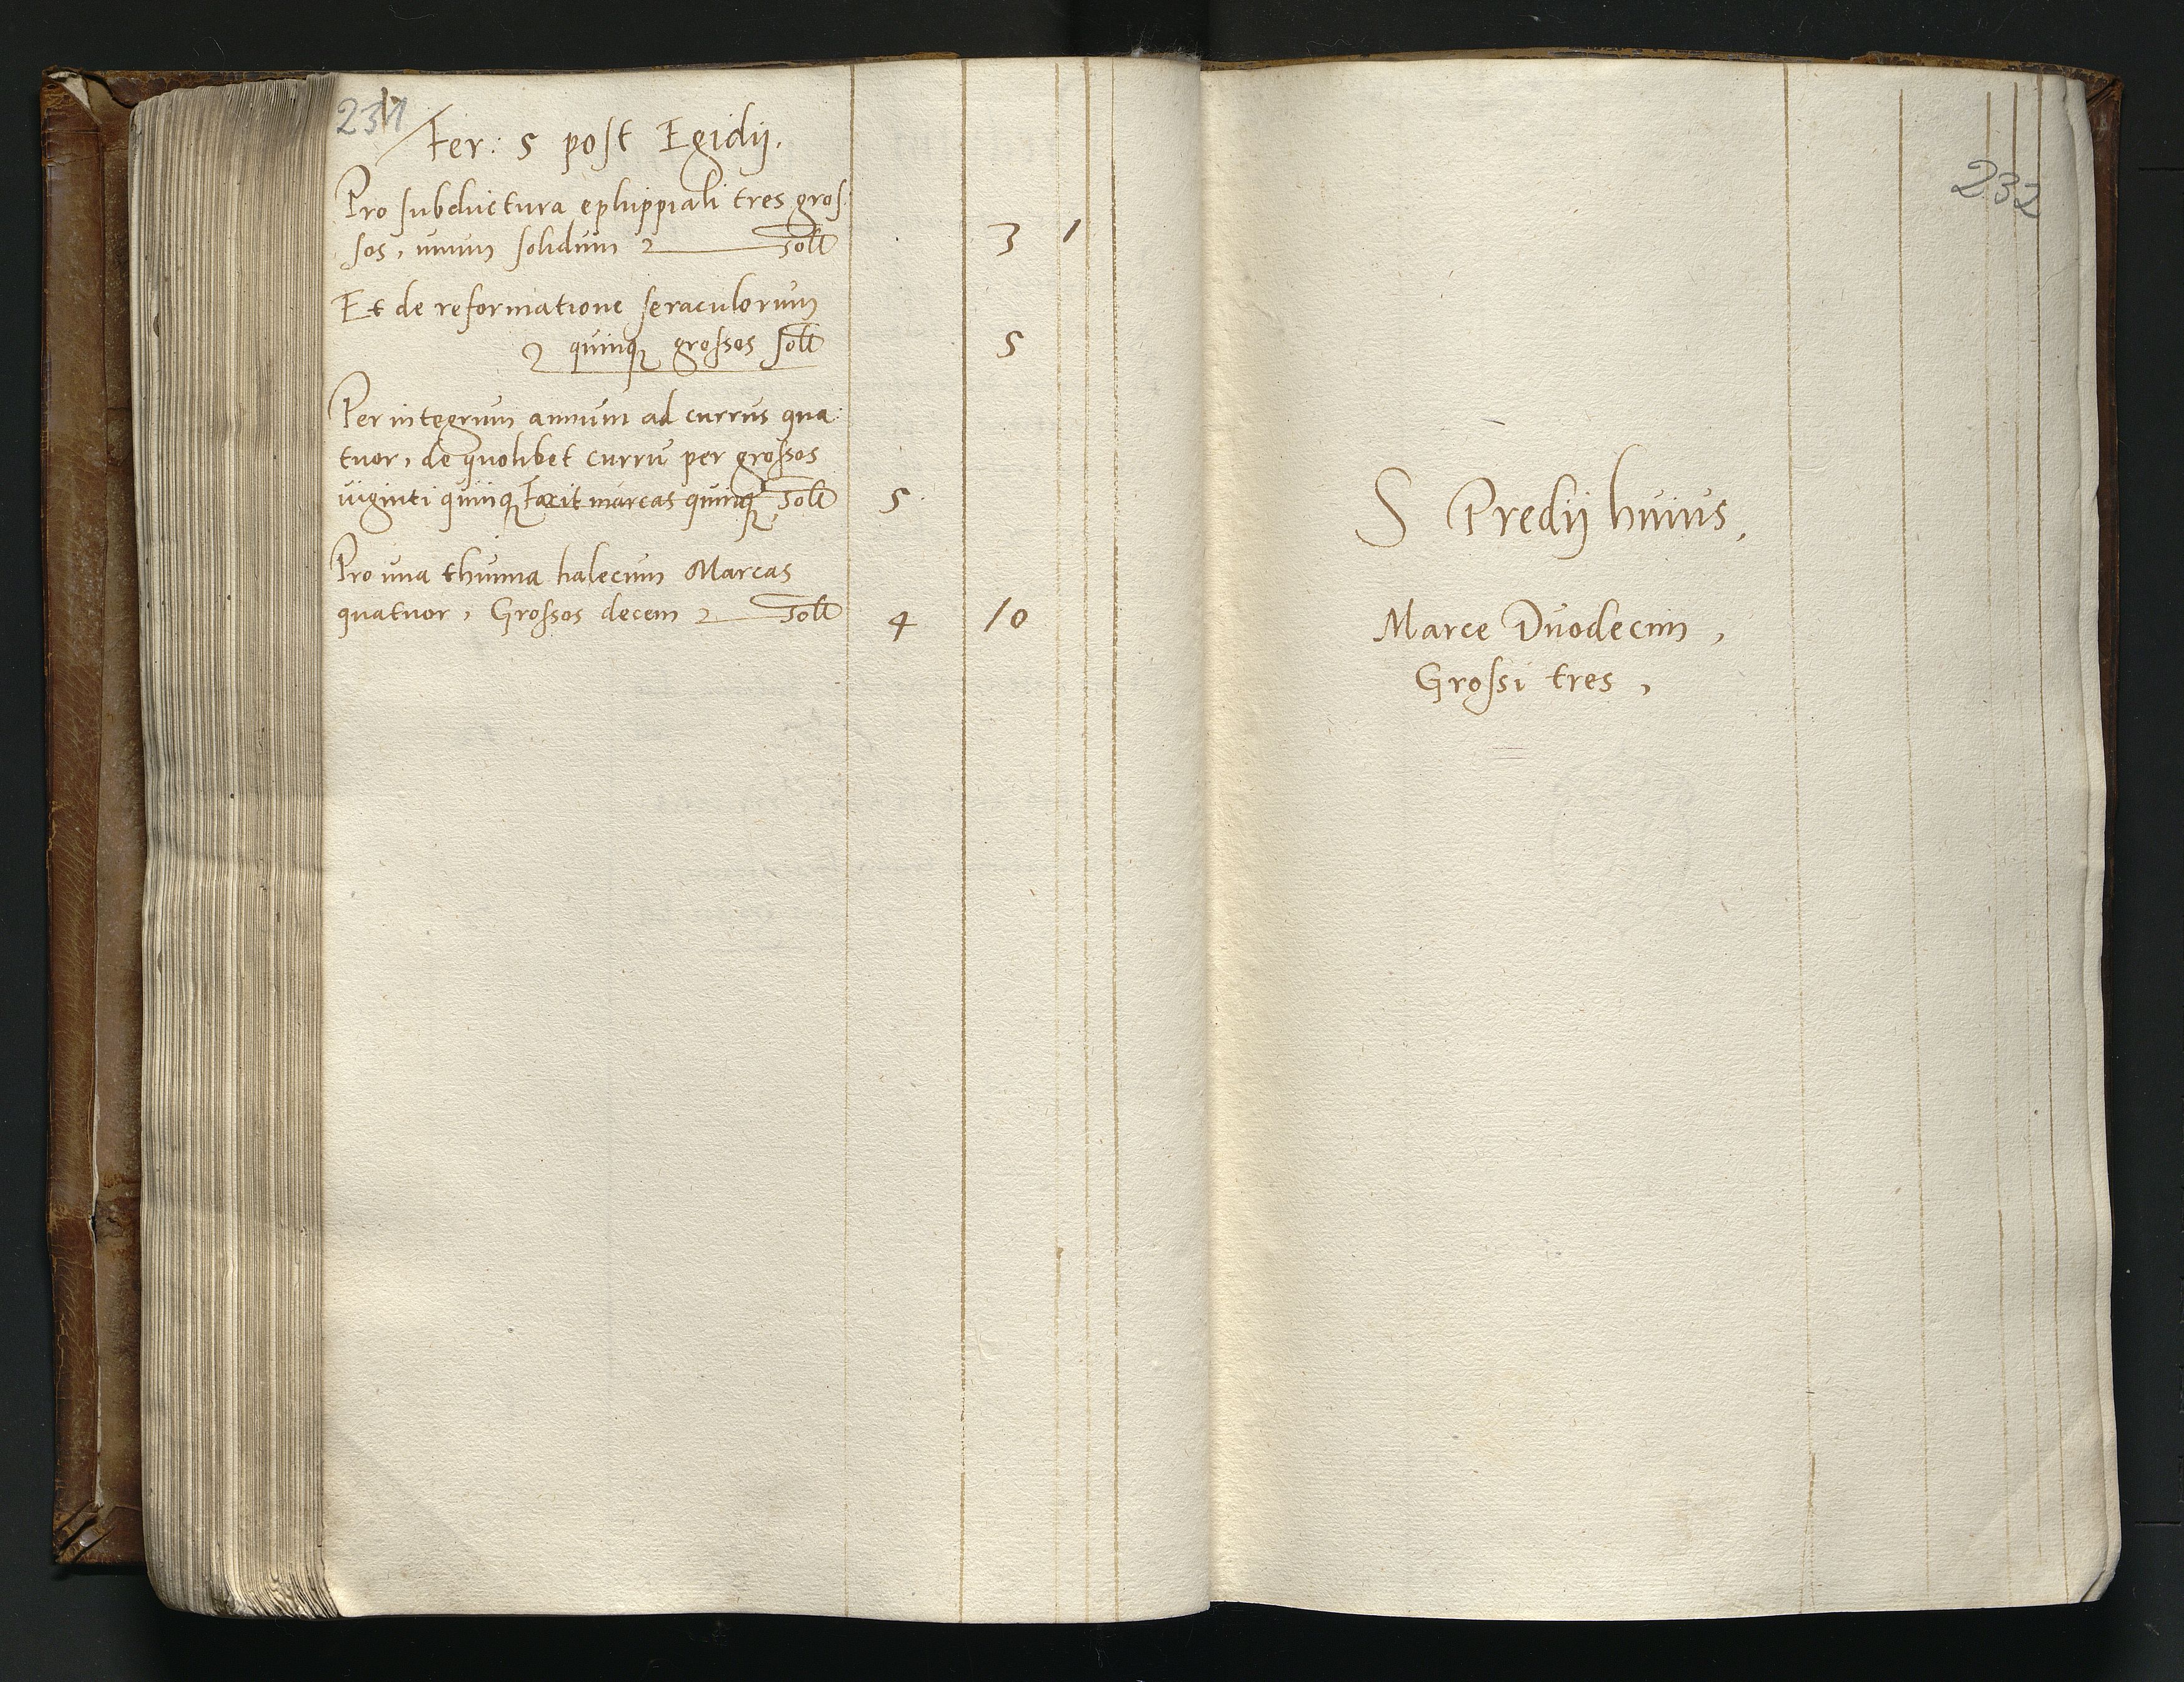 231
Fer: 5 post Egidij.
Pro subductura ephippiali tres gros:
sos, unum solidum solt 3 1
Et de reformatione seraculorum
quinq grossos solt 5
Per integrum annum ad currus qua:
tuor, de quolibet curru per grossos
viginti quinq Facit marcas quinq solt 5
Pro una thunna halecum Marcas
quatuor, Grossos decem solt 4 10
232
S Predij huius,
Marce Duodecim,
Grossi tres,